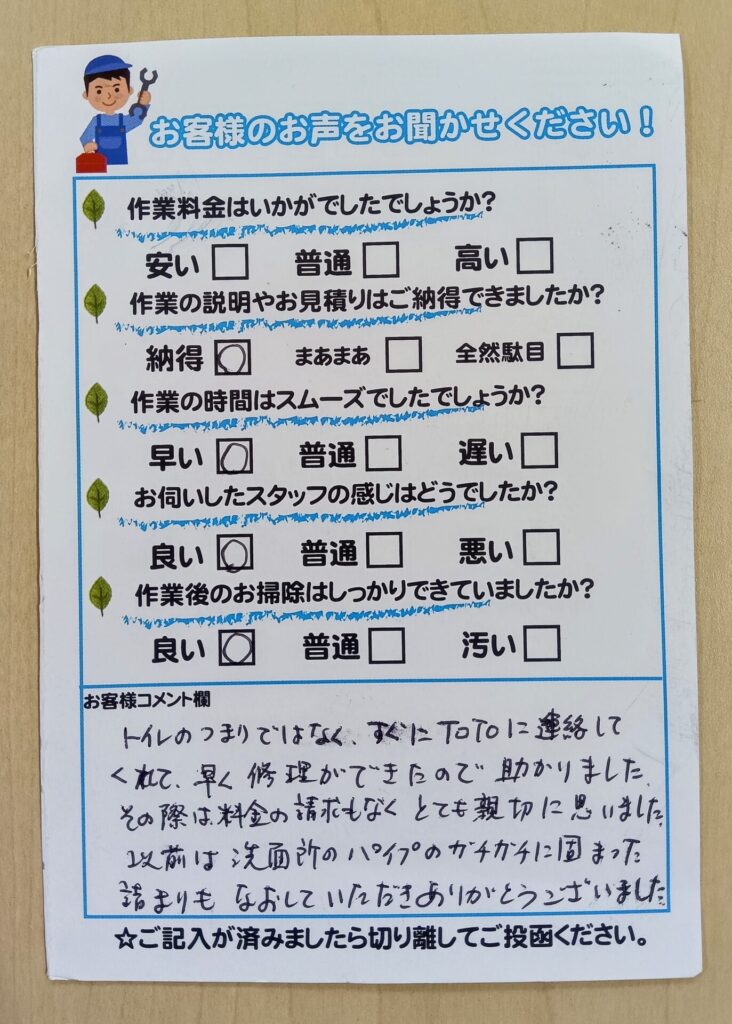 お客様のお声をお聞かせください！
作業料金はいかがでしたでしょうか？
安い□ 普通□ 高い□
作業の説明やお見積りはご納得できましたか？
納得☐ まあまあ□ 全然駄目□
作業の時間はスムーズでしたでしょうか？
早い☐ 普通□ 遅い□
お伺いしたスタッフの感じはどうでしたか？
良い☐ 普通□ 悪い□
作業後のお掃除はしっかりできていましたか？
良い☐ 普通□ 汚い□
お客様コメント欄
トイレのつまりではなく、すぐにTOTOに連絡して
くれて、早く修理ができたので助かりました。
その際は料金の請求もなくとても親切に思いました。
以前は洗面所のパイプのガチガチに固まった
詰まりもなおしていただきありがとうございました。
☆ご記入が済みましたら切り離してご投函ください。